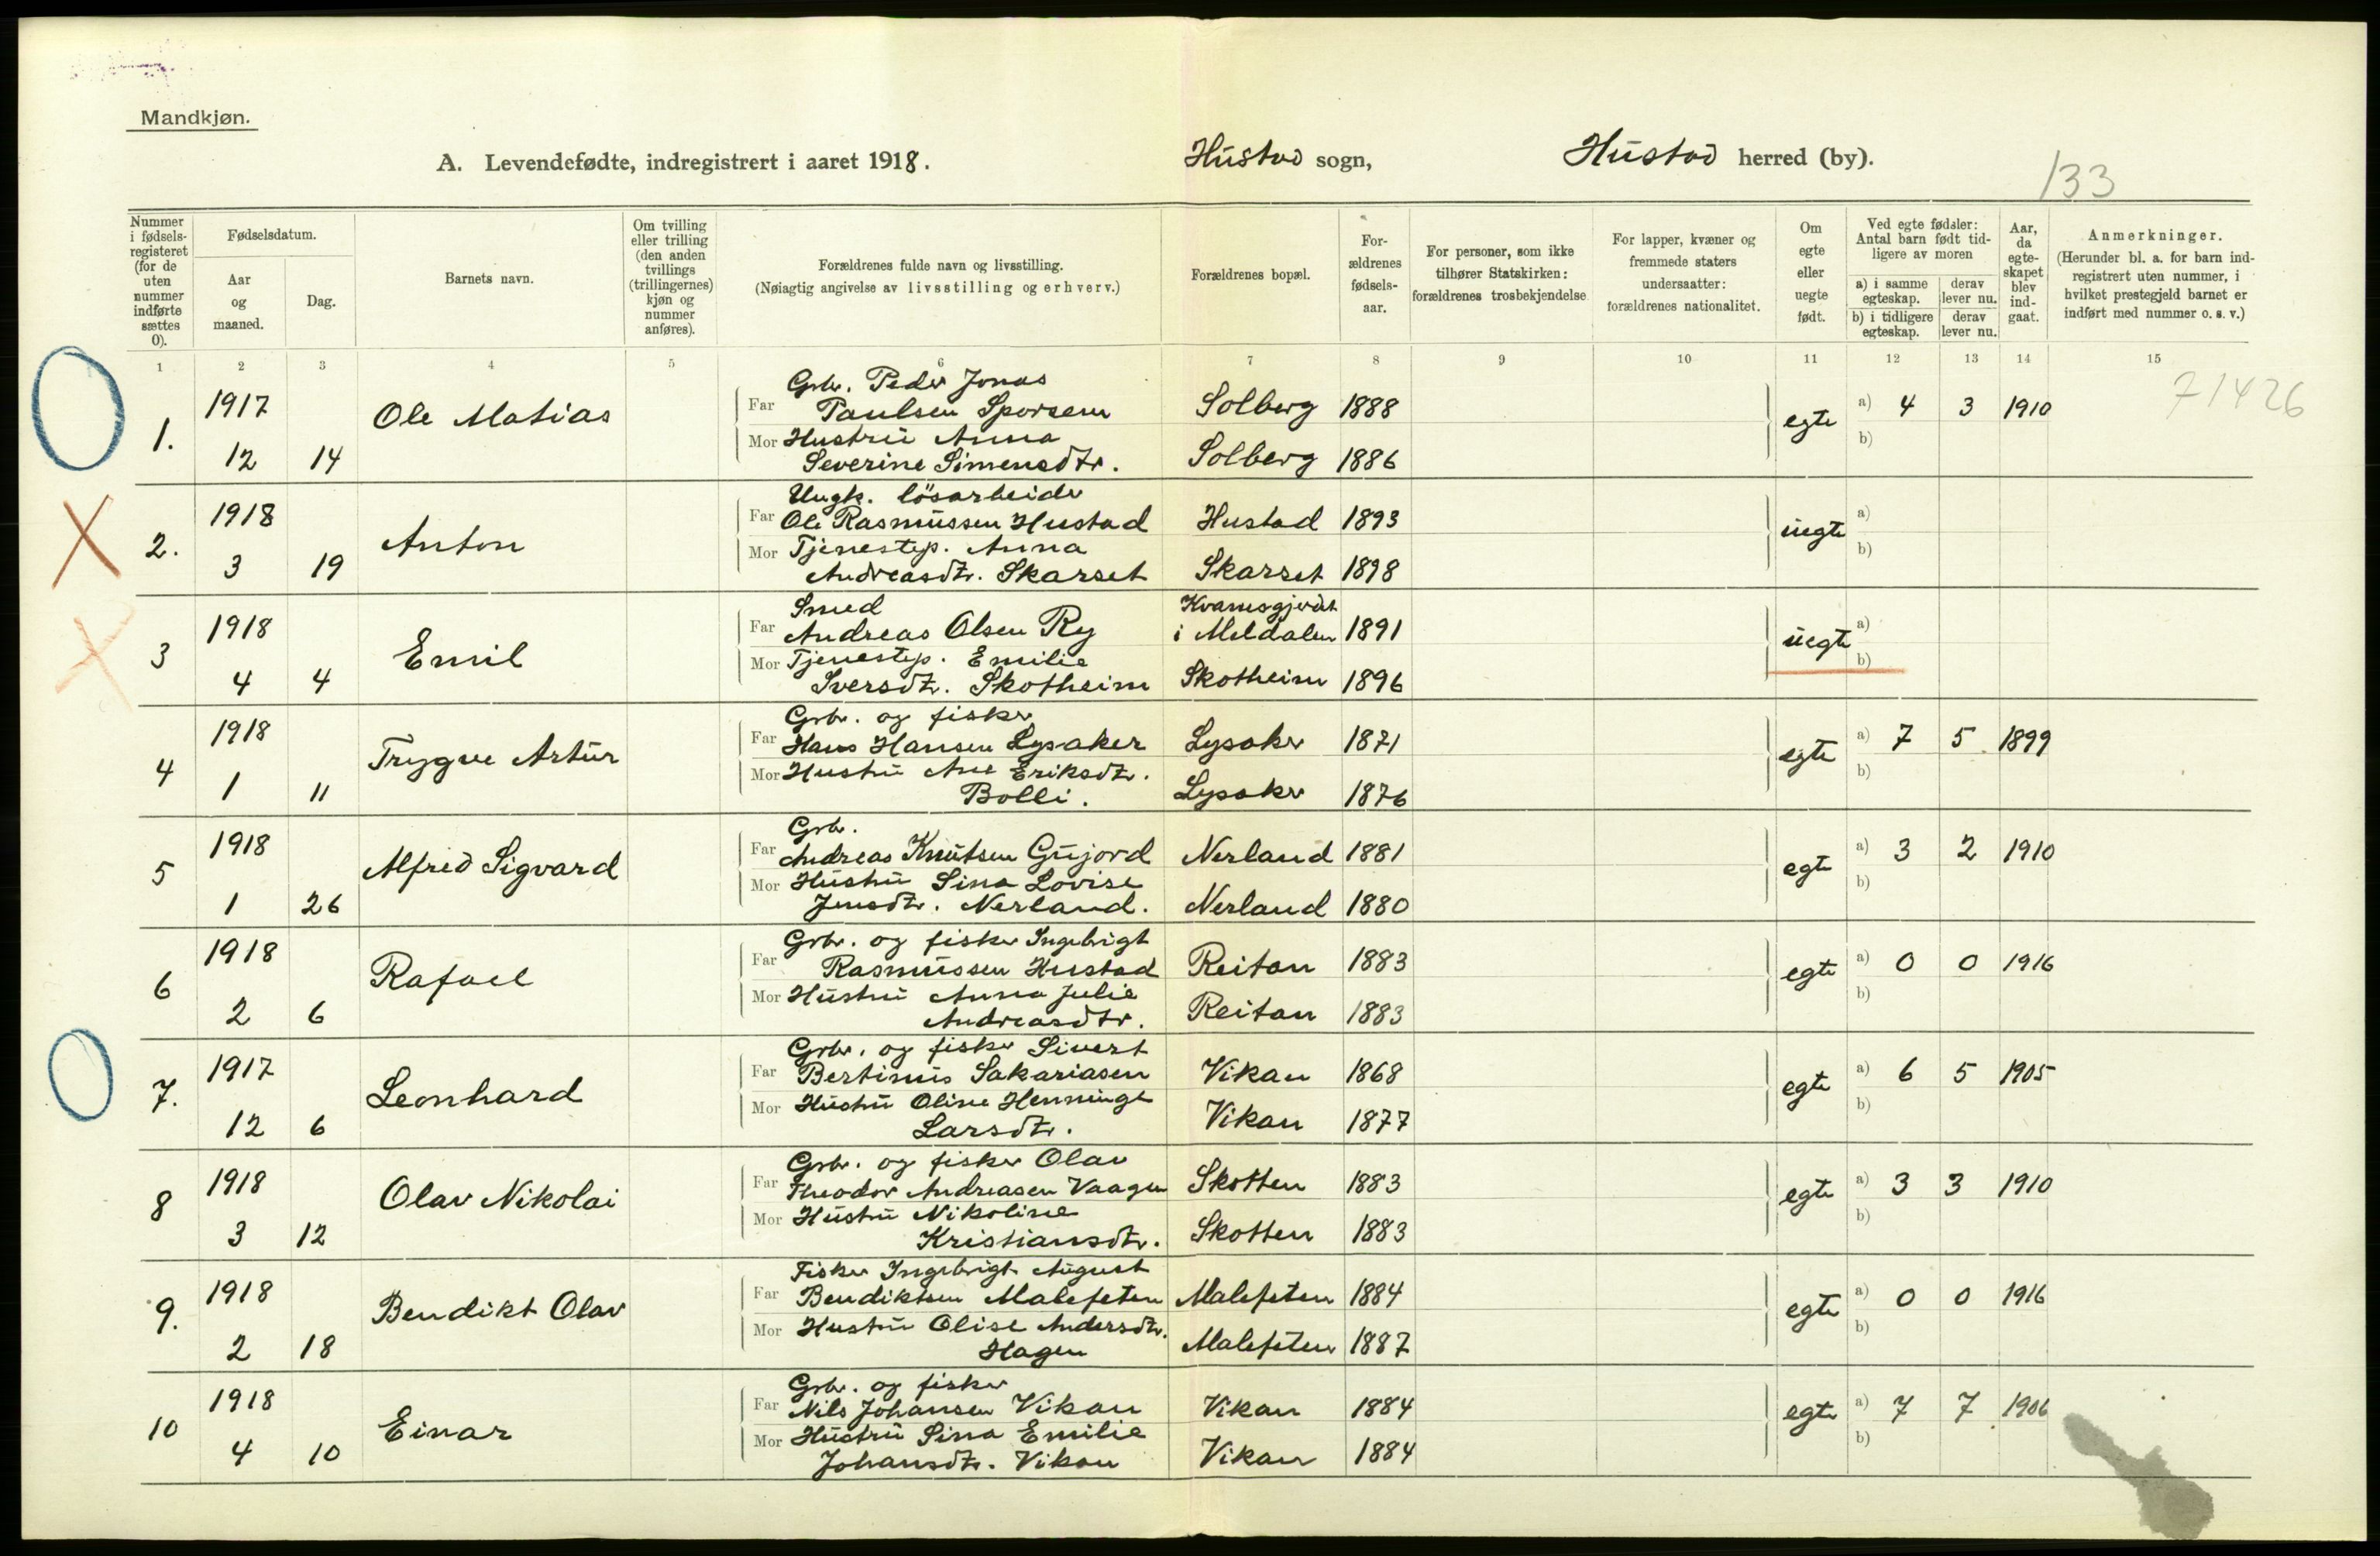 Mandkjøn.
A. Levendefødte, indregistrert i aaret 1918.
Hustad sogn,
Hustad herred (by).
133
Nummer i fødsels-registeret (for de uten nummer indførte sættes 0).
Fødselsdatum.
Aar og maaned.
Dag.
Barnets navn.
Om tvilling eller trilling (den anden tvillings (trillingernes) kjøn og nummer anføres).
Forældrenes fulde navn og livsstilling.
(Nøiagtig angivelse av livsstilling og erhverv.)
Forældrenes bopæl.
For-ældrenes fødsels-aar.
For personer, som ikke tilhører Statskirken: forældrenes trosbekjendelse
For lapper, kvæner og fremmede staters undersaatter: forældrenes nationalitet.
Om egte eller uegte født.
Ved egte fødsler: Antal barn født tid-ligere av moren
a) i samme egteskap.
derav lever nu.
b) i tidligere egteskap.
derav lever nu.
Aar, da egte-skapet blev ind-gaat.
Anmerkninger.
(Herunder bl. a. for barn ind-registrert uten nummer, i hvilket prestegjeld barnet er indført med nummer o. s. v.)
1 2 3 4 5 6 7 8 9 10 11 12 13 14 15
71426
Grbr. Peder Jonas
1. 1917 Ole Matias Far Paulsen Sporsem Solberg 1888 egte a) 4 3 1910
Mor Hustru Anna b)
12 14 Severine Simensdtr. Solberg 1886
Ungk. lösarbeider
2. 1918 Anton Far Ole Rasmussen Hustad Hustad 1893 uegte a)
Mor Tjenestep. Anna b)
3 19 Andreasdtr. Skarset Skarset 1898
Smed Kvamsgjerdet
3 1918 Emil Far Andreas Olsen Ry i Meldalen 1891 uegte a)
Mor Tjenestep. Emilie b)
4 4 Iversdtr. Skotheim Skotheim 1896
Grbr. og fisker
4 1918 Trygve Artur Far Hans Hansen Lysaker Lysaker 1871 egte a) 7 5 1899
Mor Hustru Ane Eriksdtr. b)
1 11 Bolli. Lysaker 1876
Grbr.
5 1918 Alfred Sigvard Far Andreas Knutsen Gujord Nerland 1881 egte a) 3 2 1910
Mor Hustru Sina Lovise b)
1 26 Jensdtr. Nerland. Nerland 1880
Grbr. og fisker Ingebrigt
6 1918 Rafael Far Rasmussen Hustad Reitan 1883 egte a) 0 0 1916
Mor Hustru Anna Julie b)
2 6 Andreasdtr. Reitan 1883
Grbr. og fisker Sivert
7. 1917 Leonhard Far Bertinus Sakariasen Vikan 1868 egte a) 6 5 1905
Mor Hustru Oline Henninge b)
12 6 Larsdtr. Vikan 1877
Grbr. og fisker Olav
8 1918 Olav Nikolai Far Theodor Andreasen Vaagen Skotten 1883 egte a) 3 3 1910
Mor Hustru Nikoline b)
3 12 Kristiansdtr. Skotten 1883
Fisker Ingebrigt August
9. 1918 Bendikt Olav Far Bendiktsen Malefeten Malefeten 1884 egte a) 0 0 1916
Mor Hustru Olise Andersdtr. b)
2 18 Hagen Malefeten 1887
Grbr. og fisker
10 1918 Einar Far Nils Johansen Vikan Vikan 1884 egte a) 7 7 1906
Mor Hustru Sina Emilie b)
4 10 Johansdtr. Vikan Vikan 1884